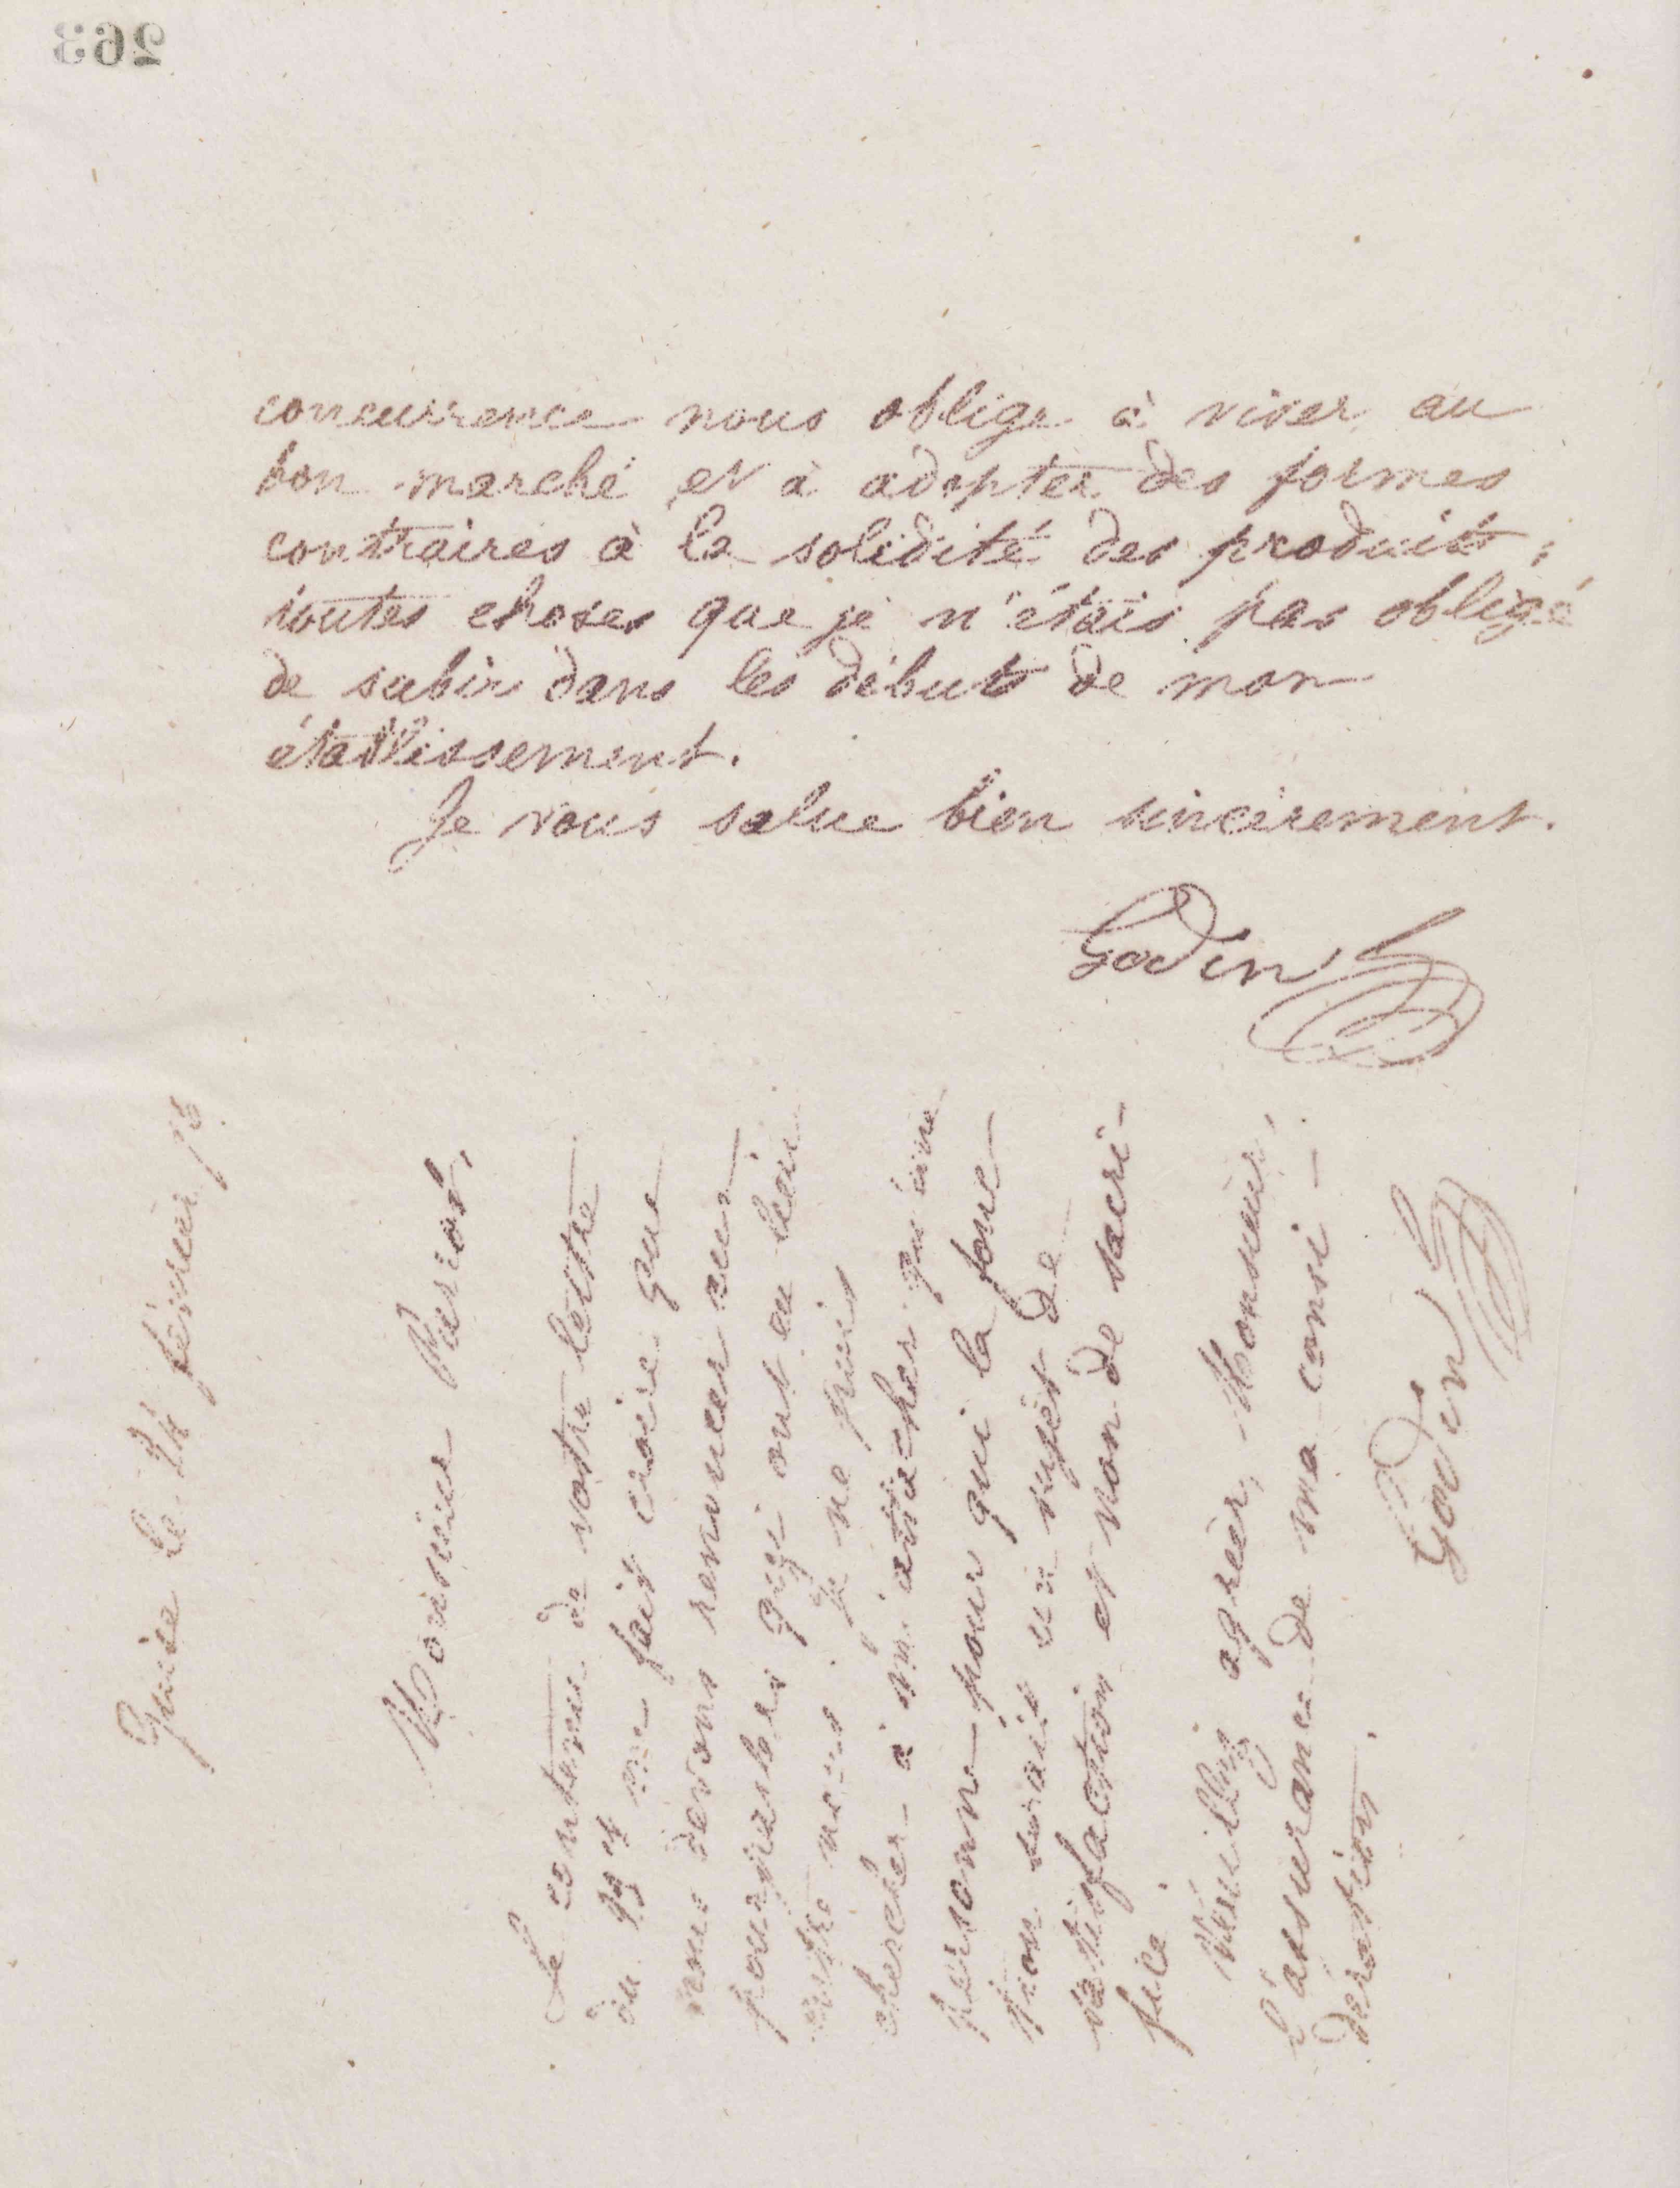 263
concurrence nous oblige à viser au
bon marché et à adopter des formes
contraires à la solidité des produits,
toutes choses que je n'étais pas obligé
de subir dans les débuts de mon
établissement.
Je vous salue bien sincèrement.
Godin
Guise le février 78
Monsieur
Le contenu de votre lettre
du me fait croire que
nous devons renoncer aux
pourparlers qui ont eu lieu
entre nous. Je ne puis
chercher à m'attacher qu'une
personne pour qui la fonc-
tion serait un sujet de
satisfaction et non de sacri-
fice.
Veuillez agréer, Monsieur,
l'assurance de ma consi-
dération.
Godin